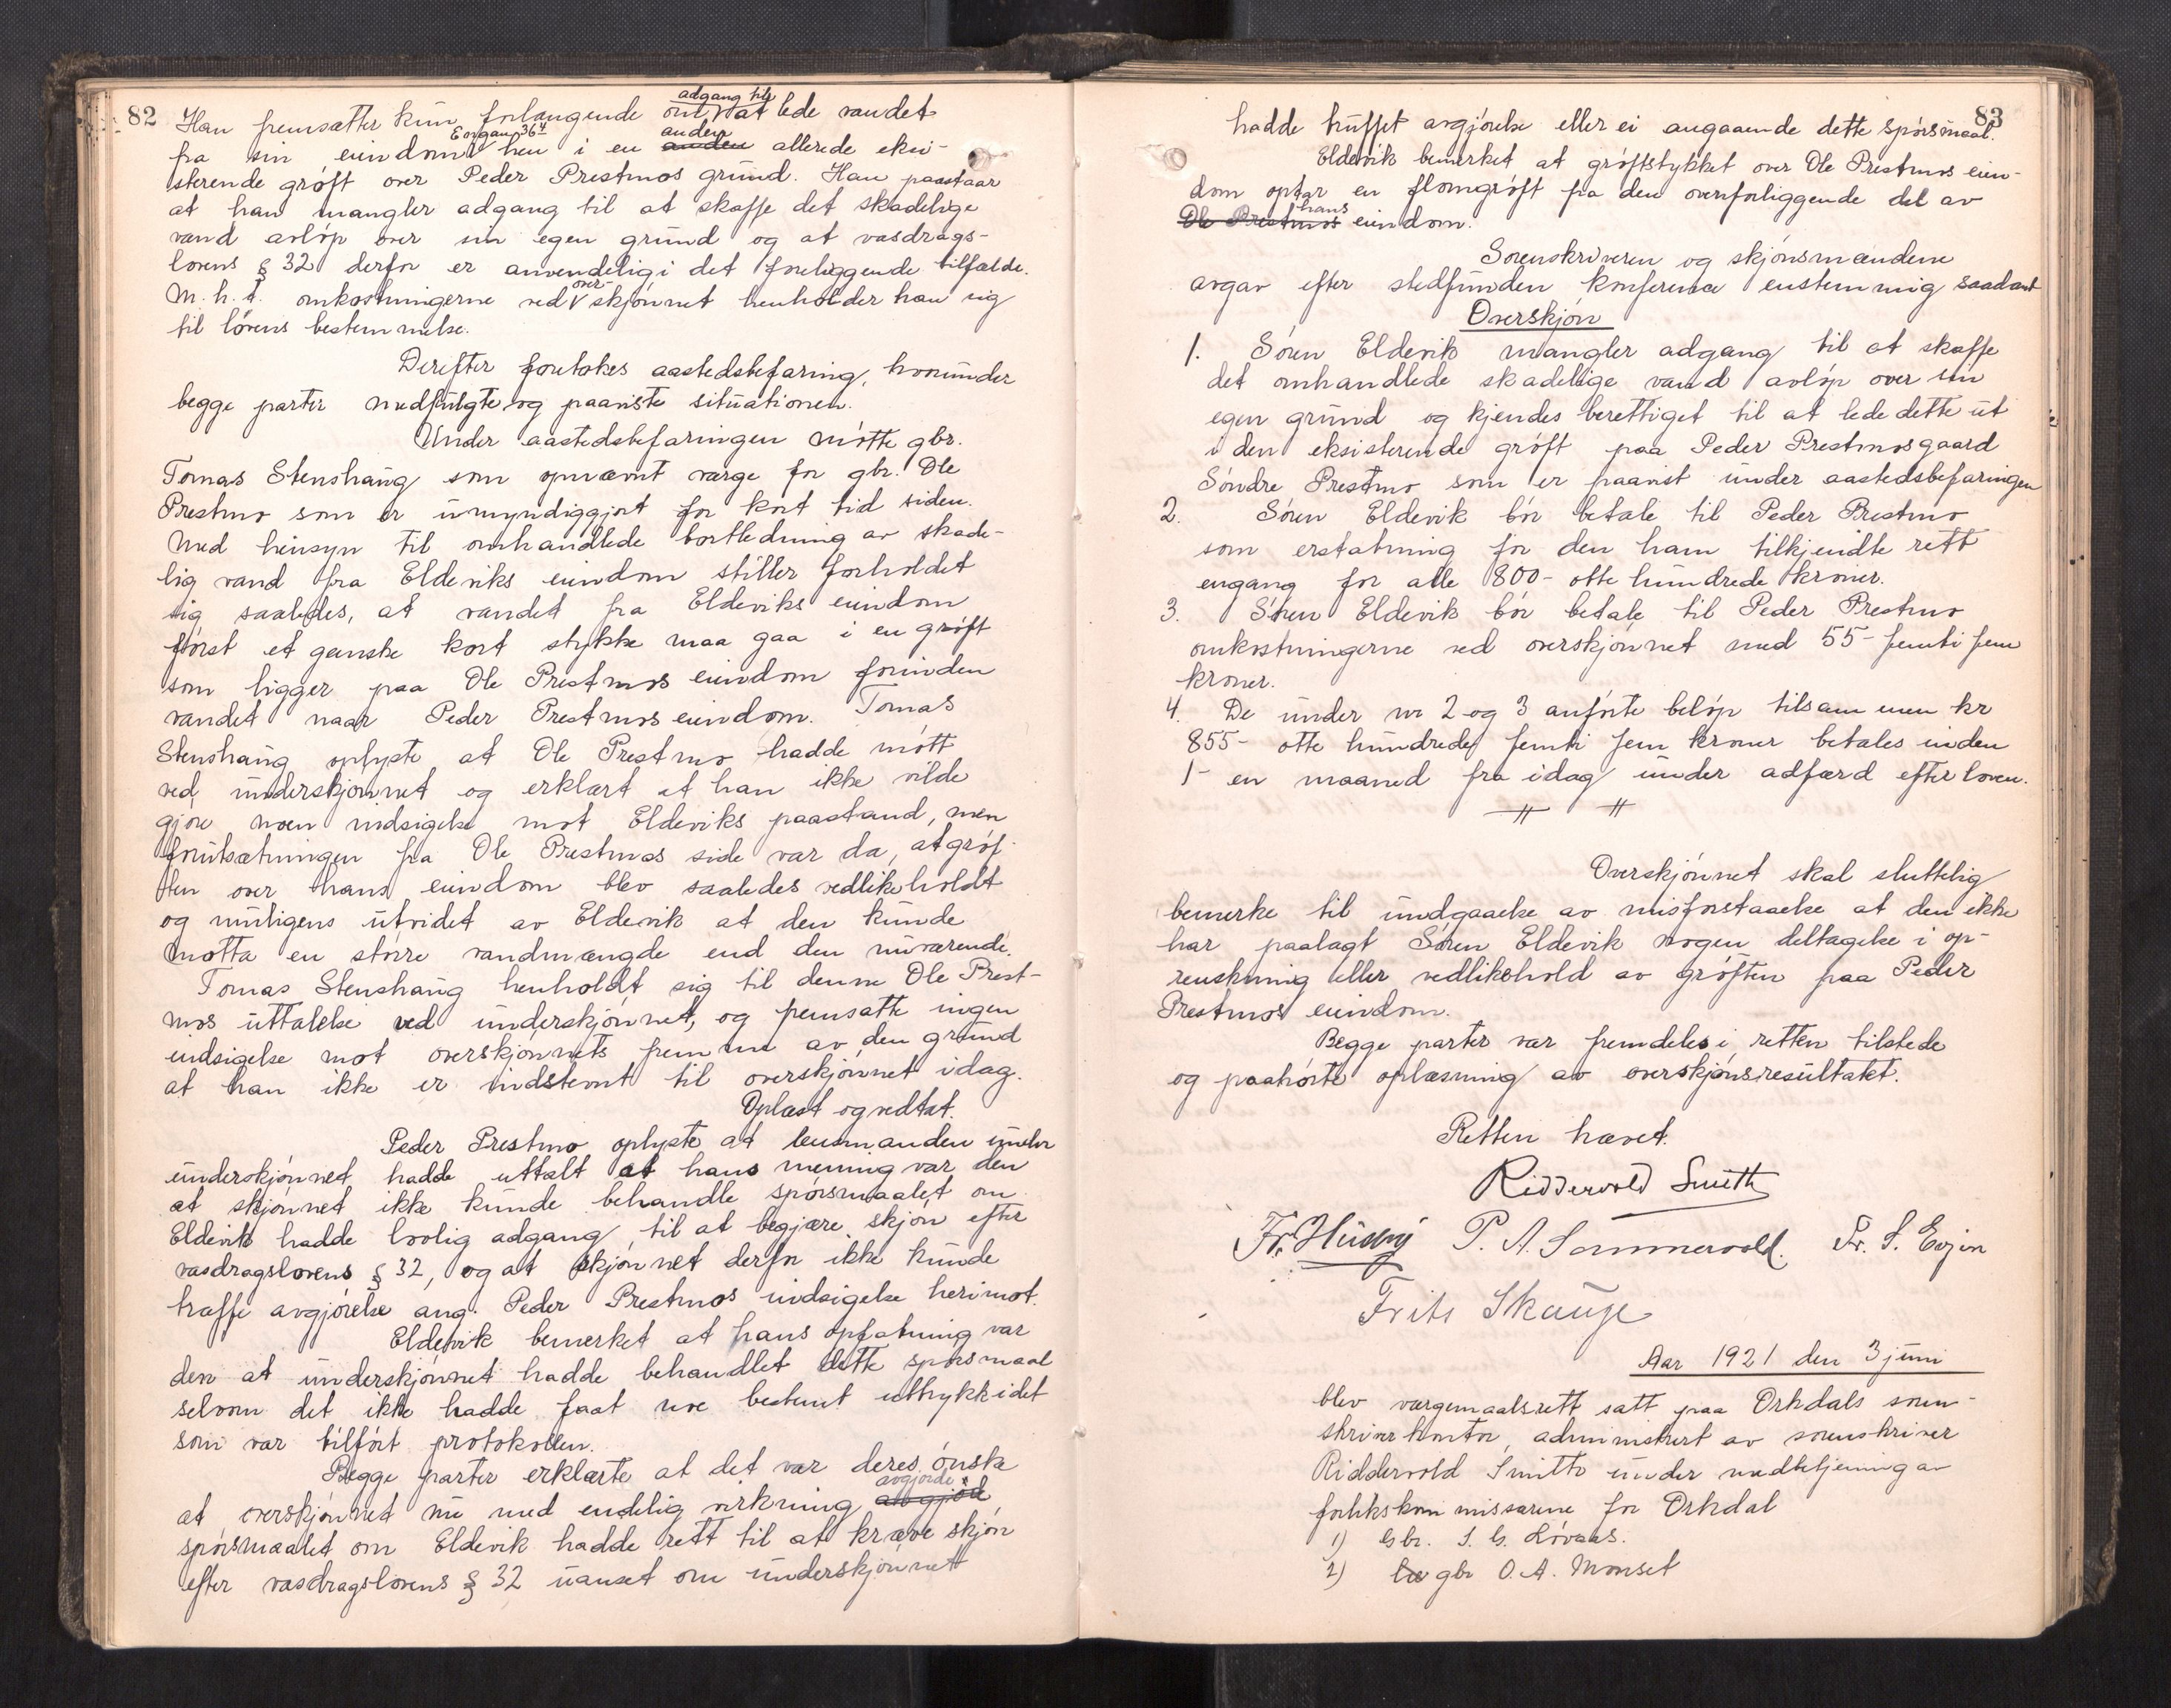 82
Han fremsætter kun forlangende om adgang til at lede vandet
fra sin eiendom Evjan 36⁴ hen i en anden anden allerede eksi-
sterende grøft over Peder Prestmos grund. Han paastaar
at han mangler adgang til at skaffe det skadelige
vand avløp over sin egen grund og at vasdrags-
lovens § 32 derfor er anvendelig i det foreliggende tilfælde.
M.h.t. omkostningerne ved over-skjønnet henholder han sig
til lovens bestemmelse.
Derefter foretokes aastedsbefaring, hvorunder
begge parter medfulgte og paaviste situationen.
Under aastedsbefaringen møtte gbr.
Tomas Stenshaug som opnævnt værge for gbr. Ole
Prestmo som er umyndiggjort for kort tid siden.
Med hensyn til omhandlede bortledning av skade-
lig vand fra Eldeviks eiendom stiller forholdet
sig saaledes, at vandet fra Eldeviks eiendom
først et ganske kort stykke maa gaa i en grøft
som ligger paa Ole Prestmos eiendom forinden
vandet naar Peder Prestmos eiendom. Tomas
Stenshaug oplyste at Ole Prestmo hadde møtt
ved underskjønnet og erklært at han ikke vilde
gjøre noen indsigelse mot Eldeviks paastand, men
forutsætningen fra Ole Prestmos side var da, at grøf-
ten over hans eiendom blev saaledes vedlikeholdt
og muligens utvidet av Eldevik at den kunde
motta en større vandmængde end den nuværende.
Tomas Stenshaug henholdt sig til denne Ole Prest-
mos uttalelse ved underskjønnet, og fremsatte ingen
indsigelse mot overskjønnets fremme av den grund
at han ikke er indstevnt til overskjønnet idag.
Oplæst og vedtat.
Peder Prestmo oplyste at lensmanden under
underskjønnet hadde uttalt at hans mening var den
at skjønnet ikke kunde behandle spørsmaalet om
Eldevik hadde lovlig adgang til at begjære skjøn efter
vasdragslovens § 32, og at skjønnet derfor ikke kunde
træffe avgjørelse ang. Peder Prestmos indsigelse herimot.
Eldevik bemerket at hans opfatning var
den at underskjønnet hadde behandlet dette spørsmaal
selvom det ikke hadde faat noe bestemt uttrykk i det
som var tilført protokollen.
Begge parter erklærte at det var deres ønske
at overskjønnet nu med endelig virkning avgjorde avgjør
spørsmaalet om Eldevik hadde rett til at kræve skjøn
efter vasdragslovens § 32 uanset om underskjønnett
83
hadde truffet avgjørelse eller ei angaaende dette spørsmaal.
Eldevik bemerket at grøftstykket over Ole Prestmos eien-
dom optar en flomgrøft fra den ovenforliggende del av
Ole Prestmos hans eiendom.
Sorenskriveren og skjønsmændene
avgav efter stedfunden konferance enstemmig saadant
Overskjøn
1. Søren Eldevik mangler adgang til at skaffe
det omhandlede skadelige vand avløp over sin
egen grund og kjendes berettiget til at lede dette ut
i den eksisterende grøft paa Peder Prestmos gaard
Søndre Prestmo som er paavist under aastedsbefaringen
2. Søren Eldevik bør betale til Peder Prestmo
som erstatning for den ham tilkjendte rett
engang for alle 800- otte hundrede kroner.
3. Søren Eldevik bør betale til Peder Prestmo
omkostningerne ved overskjønnet med 55- femti fem
kroner.
4. De under nr 2 og 3 anførte beløp tilsammen kr
855- otte hundrede femti fem kroner betales inden
1- en maaned fra idag under adfærd efter loven.
Overskjønnet skal sluttelig
bemerke til undgaaelse av misforstaaelse at den ikke
har paalagt Søren Eldevik nogen deltagelse i op-
renskning eller vedlikehold av grøften paa Peder
Prestmos eiendom.
Begge parter var fremdeles i retten tilstede
og paahørte oplæsning av overskjønsresultatet.
Retten hævet.
Riddervold Smith
Fr. Husby P. A. Sommervold. Fr. S. Evjen
Frits Skauge
Aar 1921 den 3 juni
blev værgemaalsrett satt paa Orkdals soren-
skriverkontor, administrert av sorenskriver
Riddervold Smith under medbetjening av
forlikskommissærene for Orkdal
1) Gbr. S. G. Løvaas.
2) gbr O. A. Monset